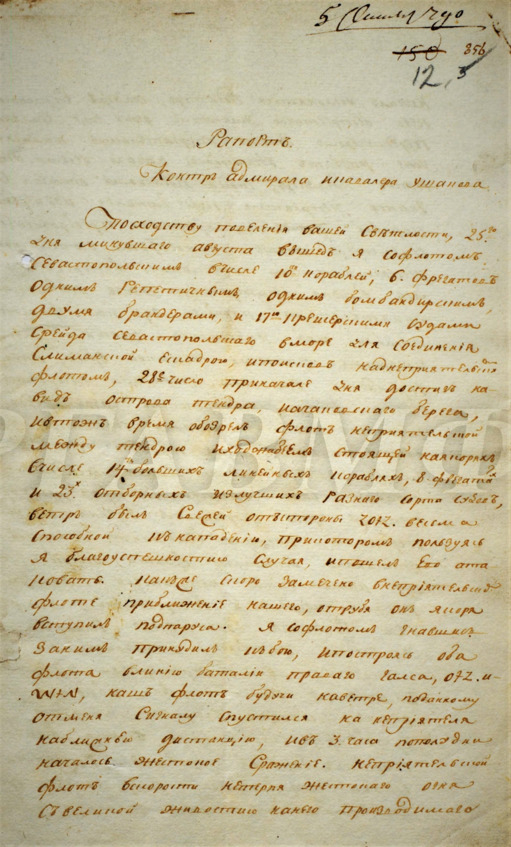 5 Сентяб 790
150 356
12, 3
Рапортъ.
Контръ адмирала и кавалера Ушакова
Посходству повеленія вашей Свѣтлости, 25го
дня минувшаго августа вышедъ я сфлотомъ
Севастопольскимъ вчисле 10 кораблей, 6. фрегатовъ
Однимъ Репетичнымъ, однимъ бомбандирскимъ,
двумя брандерами, и 17ю крейсерскими судами
Срейда Севастопольскаго вморе для Соединенія
Слиманской ескадрою, ипоисковъ надъ неприятельскимъ
флотомъ, 28е число приначале дня достигъ на
видъ острова тендра, начаповскаго берега,
ивтожъ время обозрелъ флотъ неприятельской
между тендрою ихаджибеемъ стоящей наякоряхъ
вчисле 14ти большихъ линейныхъ корабляхъ, 8 фрегатахъ
и 23х отборныхъ излучшихъ разнаго сорта судовъ,
ветръ былъ Свежей отъстороны zotz. весьма
способной къ нападенію, прикоторомъ пользуясь
Я благоуспешностию случая, ипошелъ Его ата
ковать. какъже скоро замечено внепріятельскомъ
флоте приближеніе нашего, отрубя онъ якоря
вступилъ подпаруса. Я софлотомъ гнавшись
Занимъ принудилъ къбою, ипострояся оба
флота влинію баталіи праваго галса, otz. и
WtN, нашъ флотъ будучи наветре, поданному
отменя Сигналу спустился на непріятеля
наближнею дистанцію, ивъ 3. часа пополудни
началось жестокое Сраженіе. непріятельской
флотъ вскорости нетерпя жестокаго огня
Съвеликой живостию нанего производимаго